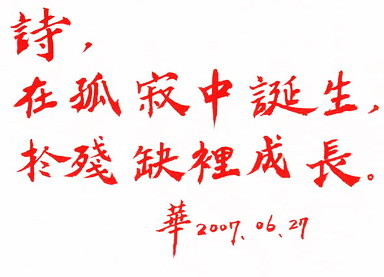 詩，
在孤寂中誕生，
於殘缺裡成長。
華2007.06.27